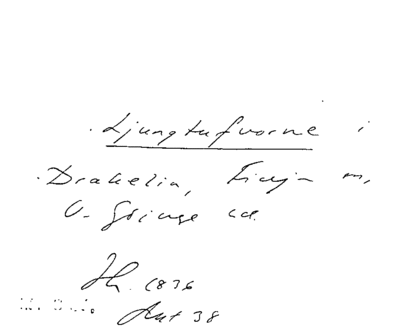 Ljungtufvorne i
Drakelia, Finja m,
V. Göinge hd.
Th. 1836
Ant 38